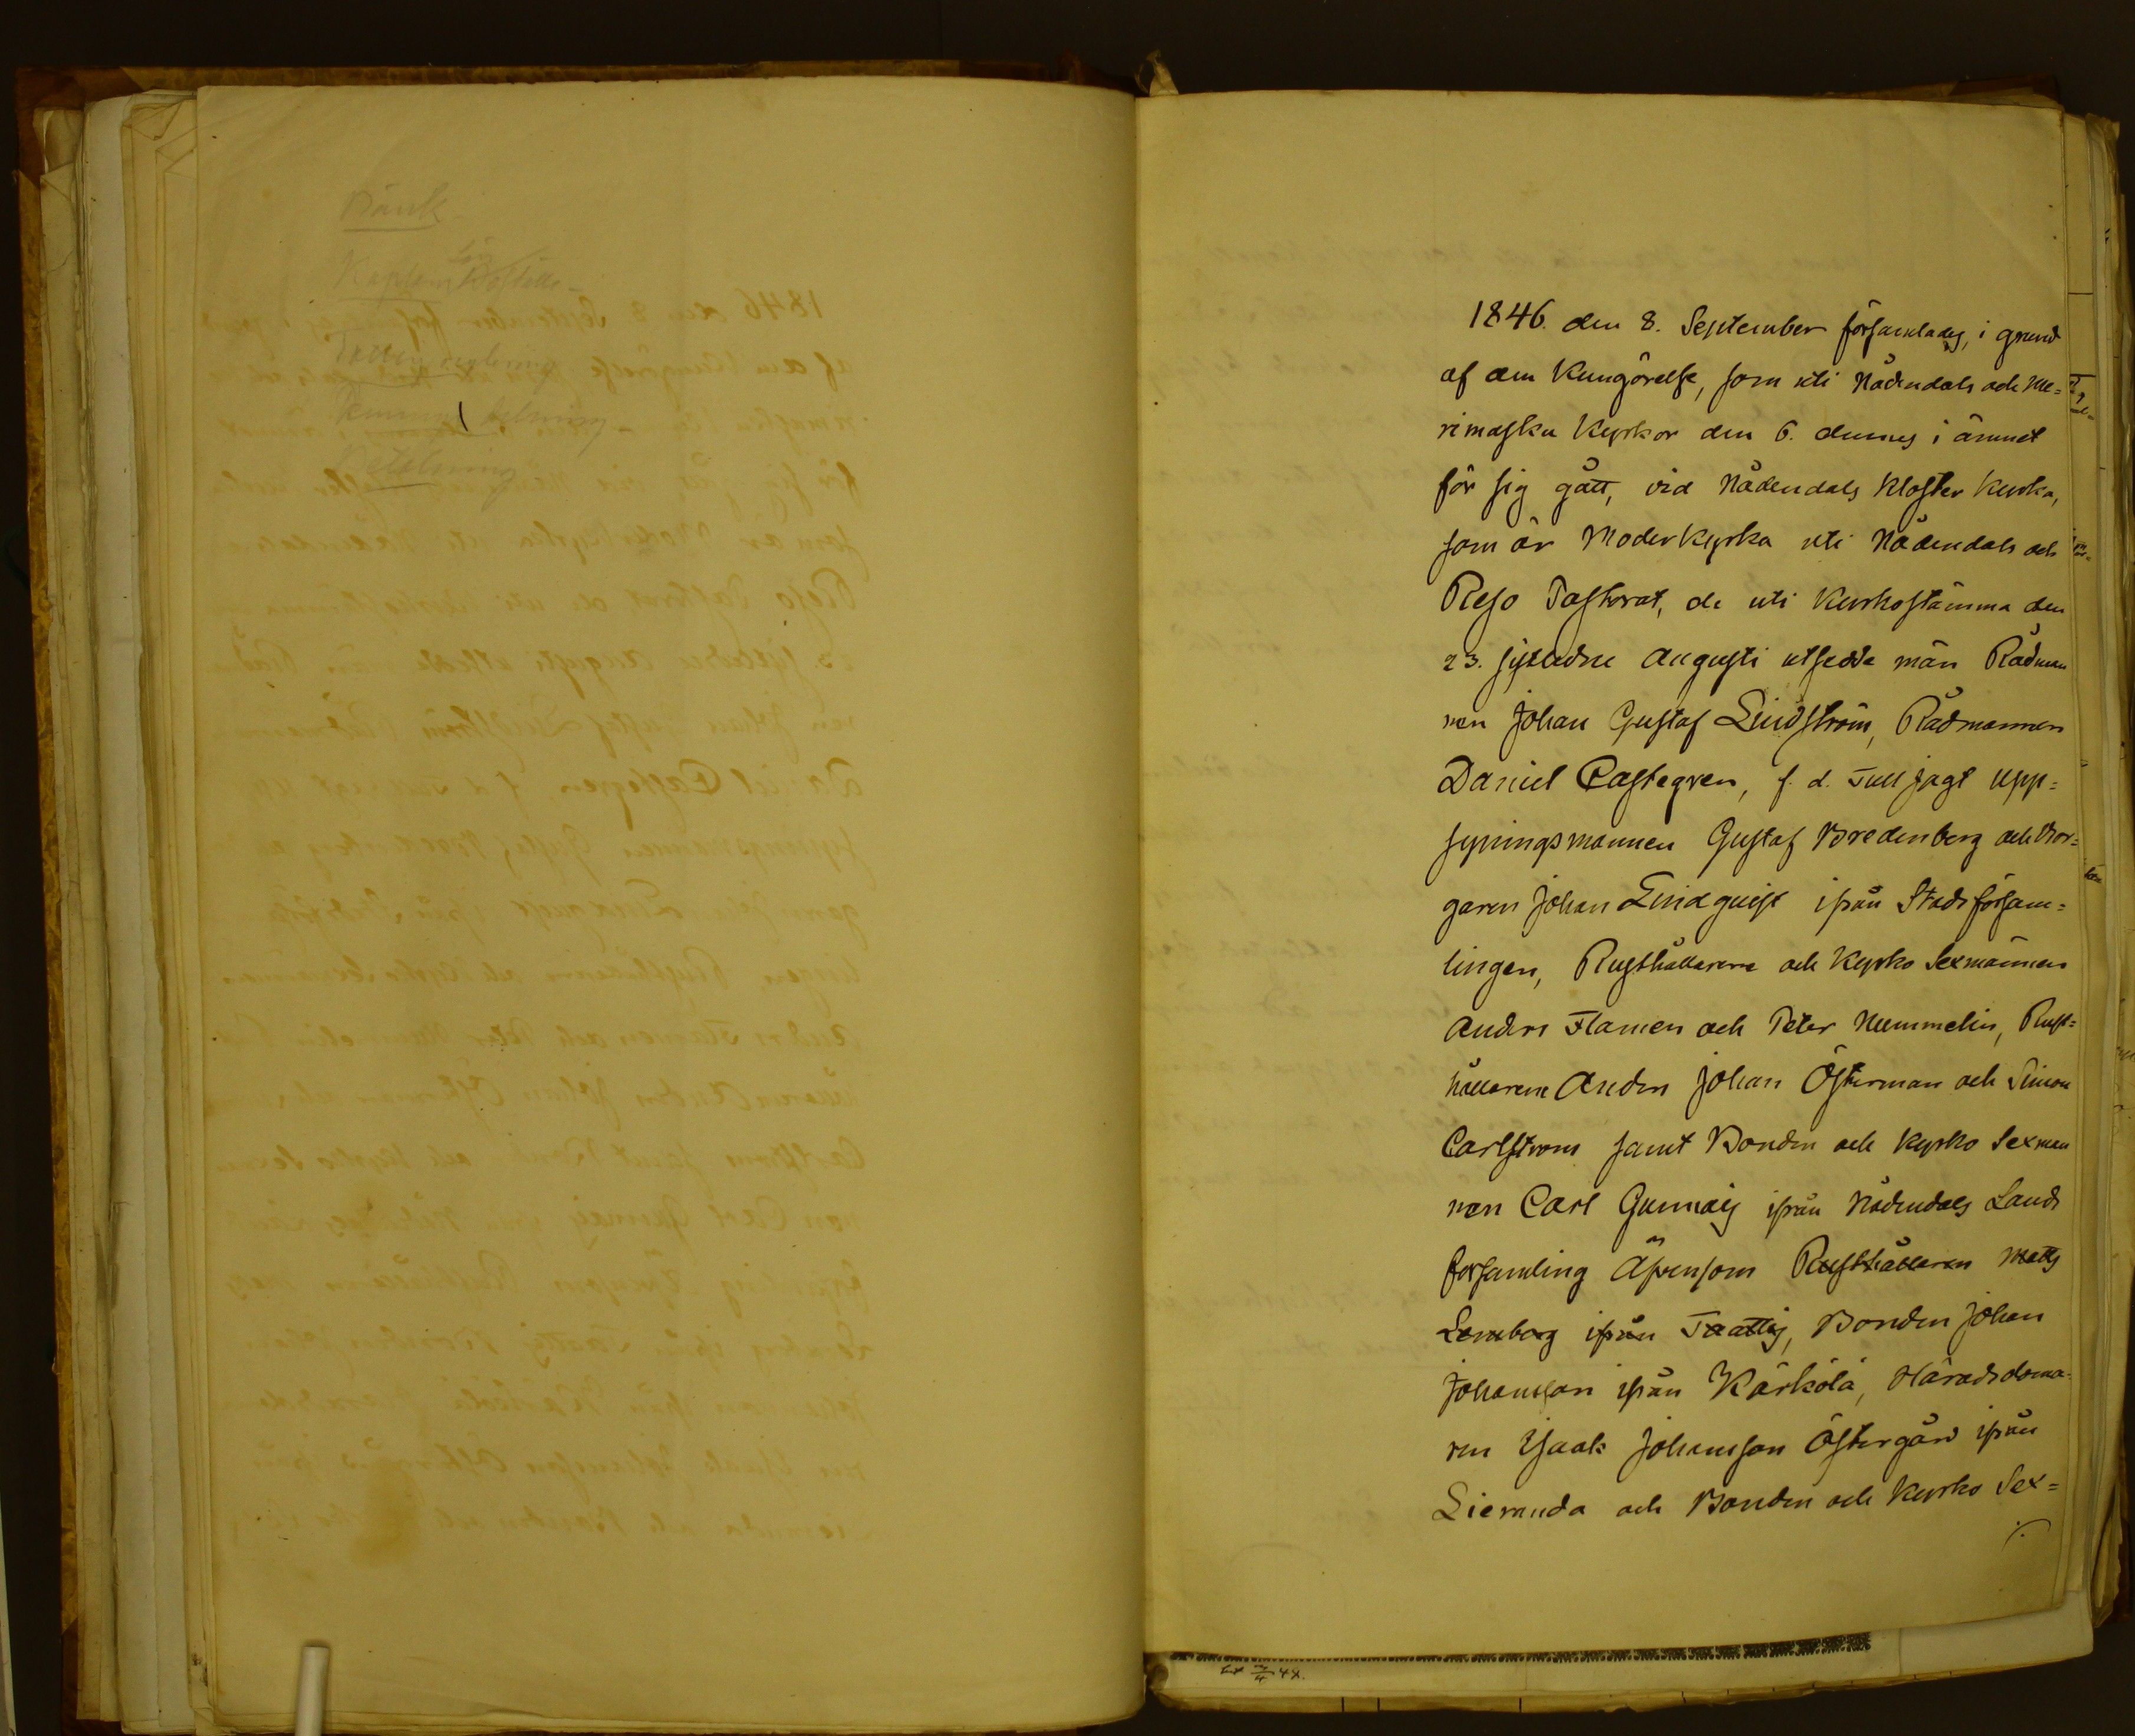 Bänk
1846. den 8. September församlades, i grund
af den Kungörelse, som uti Nådendals och Me=
rimasku Kyrkor den 6. dennes i ämnet
för sig gått, vid Nådendals Kloster Kyrka,
som är Moderkyrka uti Nådendals och
Reso Pastorat, de uti Kyrkostämma den
23. sistledne Augusti utsedde män Rådman
nen Johan Gustaf Lindström, Rådmannen
Daniel Castegren, f. d. Tull jagt Upp=
syningsmannen Gustaf Bredenberg och Bor=
garen Johan Lindquist ifrån Stads församᷓ=
lingen, Rusthållarene och Kyrko Sexmännen
Anders Flamen och Peter Nummelin, Rust=
hållarene Anders Johan Österman och Simon
Carlstrom samt Bonden och Kyrko Sexman
nen Carl Gunnais ifrån Nådendals Lands
församling Äfvensom Rusthållaren Matts
Lemberg ifrån Taattis, Bonden Johan
Johansson ifrån Kärkölä, Häradsdoma=
ren Isaak Johansson Östergård ifrån
Lieranda och Bonden och Kyrko Sex=
./.